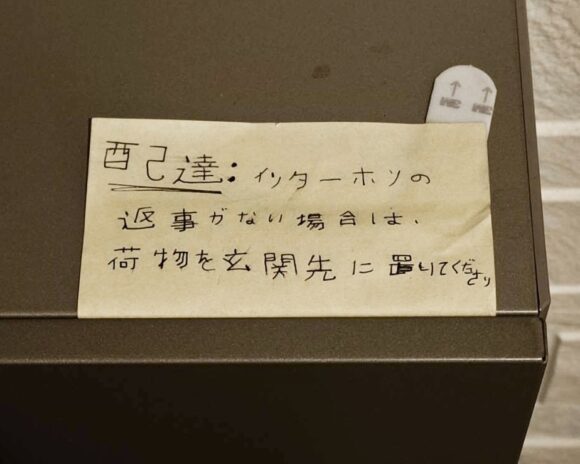 配達：インターホンの
返事がない場合は、
荷物を玄関先に置いてください